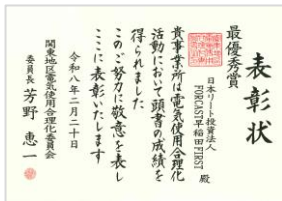 表彰状
最優秀賞
日本リート投資法人
FORECAST早稲田FIRST 殿
貴事業所は電気使用合理化
活動において頭書の成績を
得られました
このご努力に敬意を表し
ここに表彰いたします
令和八年二月二十日
関東地区電気使用合理化委員会
委員長 芳野 恵一